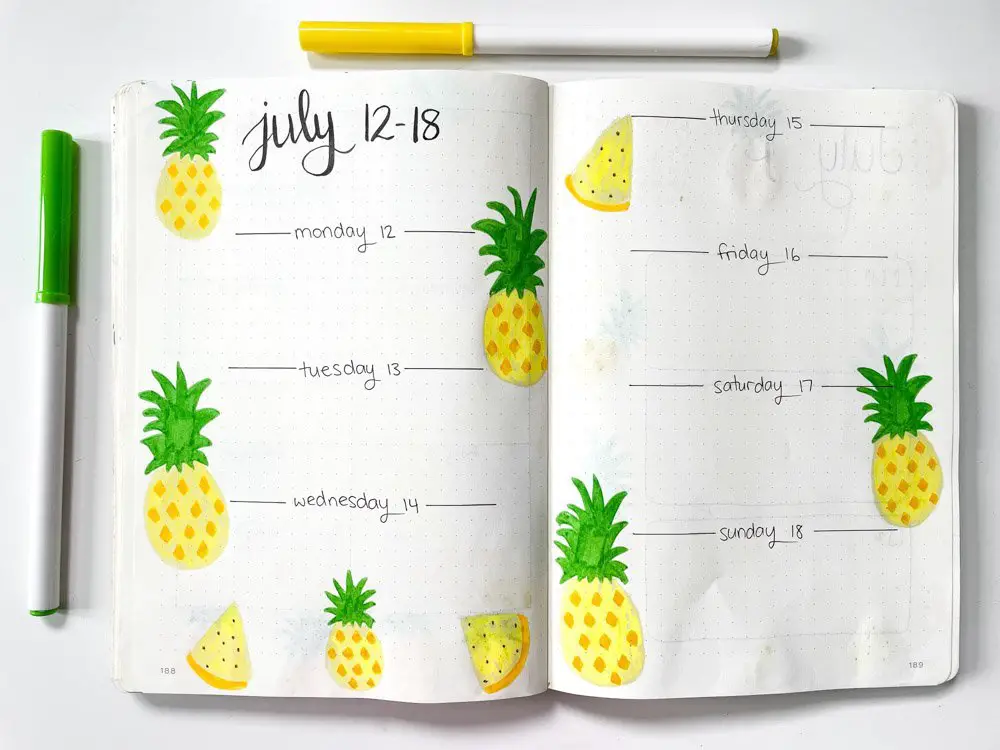 july 12-18
monday 12
tuesday 13
wednesday 14
188
thursday 15
friday 16
saturday 17
sunday 18
189